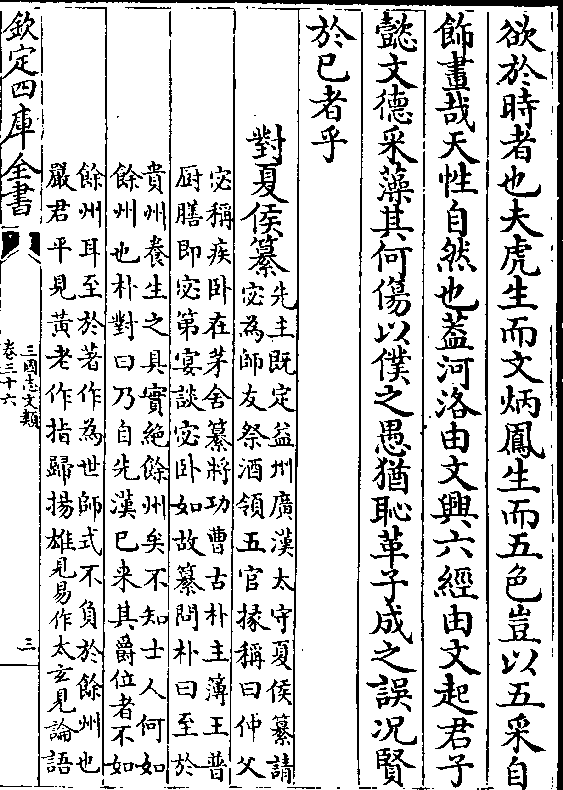 欲於時者也夫虎生而文炳鳳生而五色豈以五采自
飾畫哉天性自然也葢河洛由文興六經由文起君子
懿文德采藻其何傷以僕之愚猶恥革子成之誤况賢
於已者乎
對夏侯纂
先主既定益州廣漢太守夏侯纂請
宓為師友祭酒領五官掾稱曰仲父
宓稱疾卧在茅舍纂將功曹古朴主簿王普
厨膳即宓第宴談宓卧如故纂問朴曰至於
貴州養生之具實絶餘州矣不知士人何如
餘州也朴對曰乃自先漢已来其爵位者不如
餘州耳至於著作為世師式不負於餘州也
嚴君平見黄老作指歸揚雄見易作太玄見論語
欽定四庫全書
三國志文類
卷三十六
三